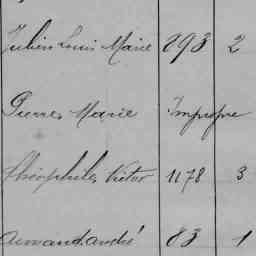 Julien Louis Marie 893 2
Pierre Marie Impropre
Théophile Victor 1178 3
Armand André 83 1